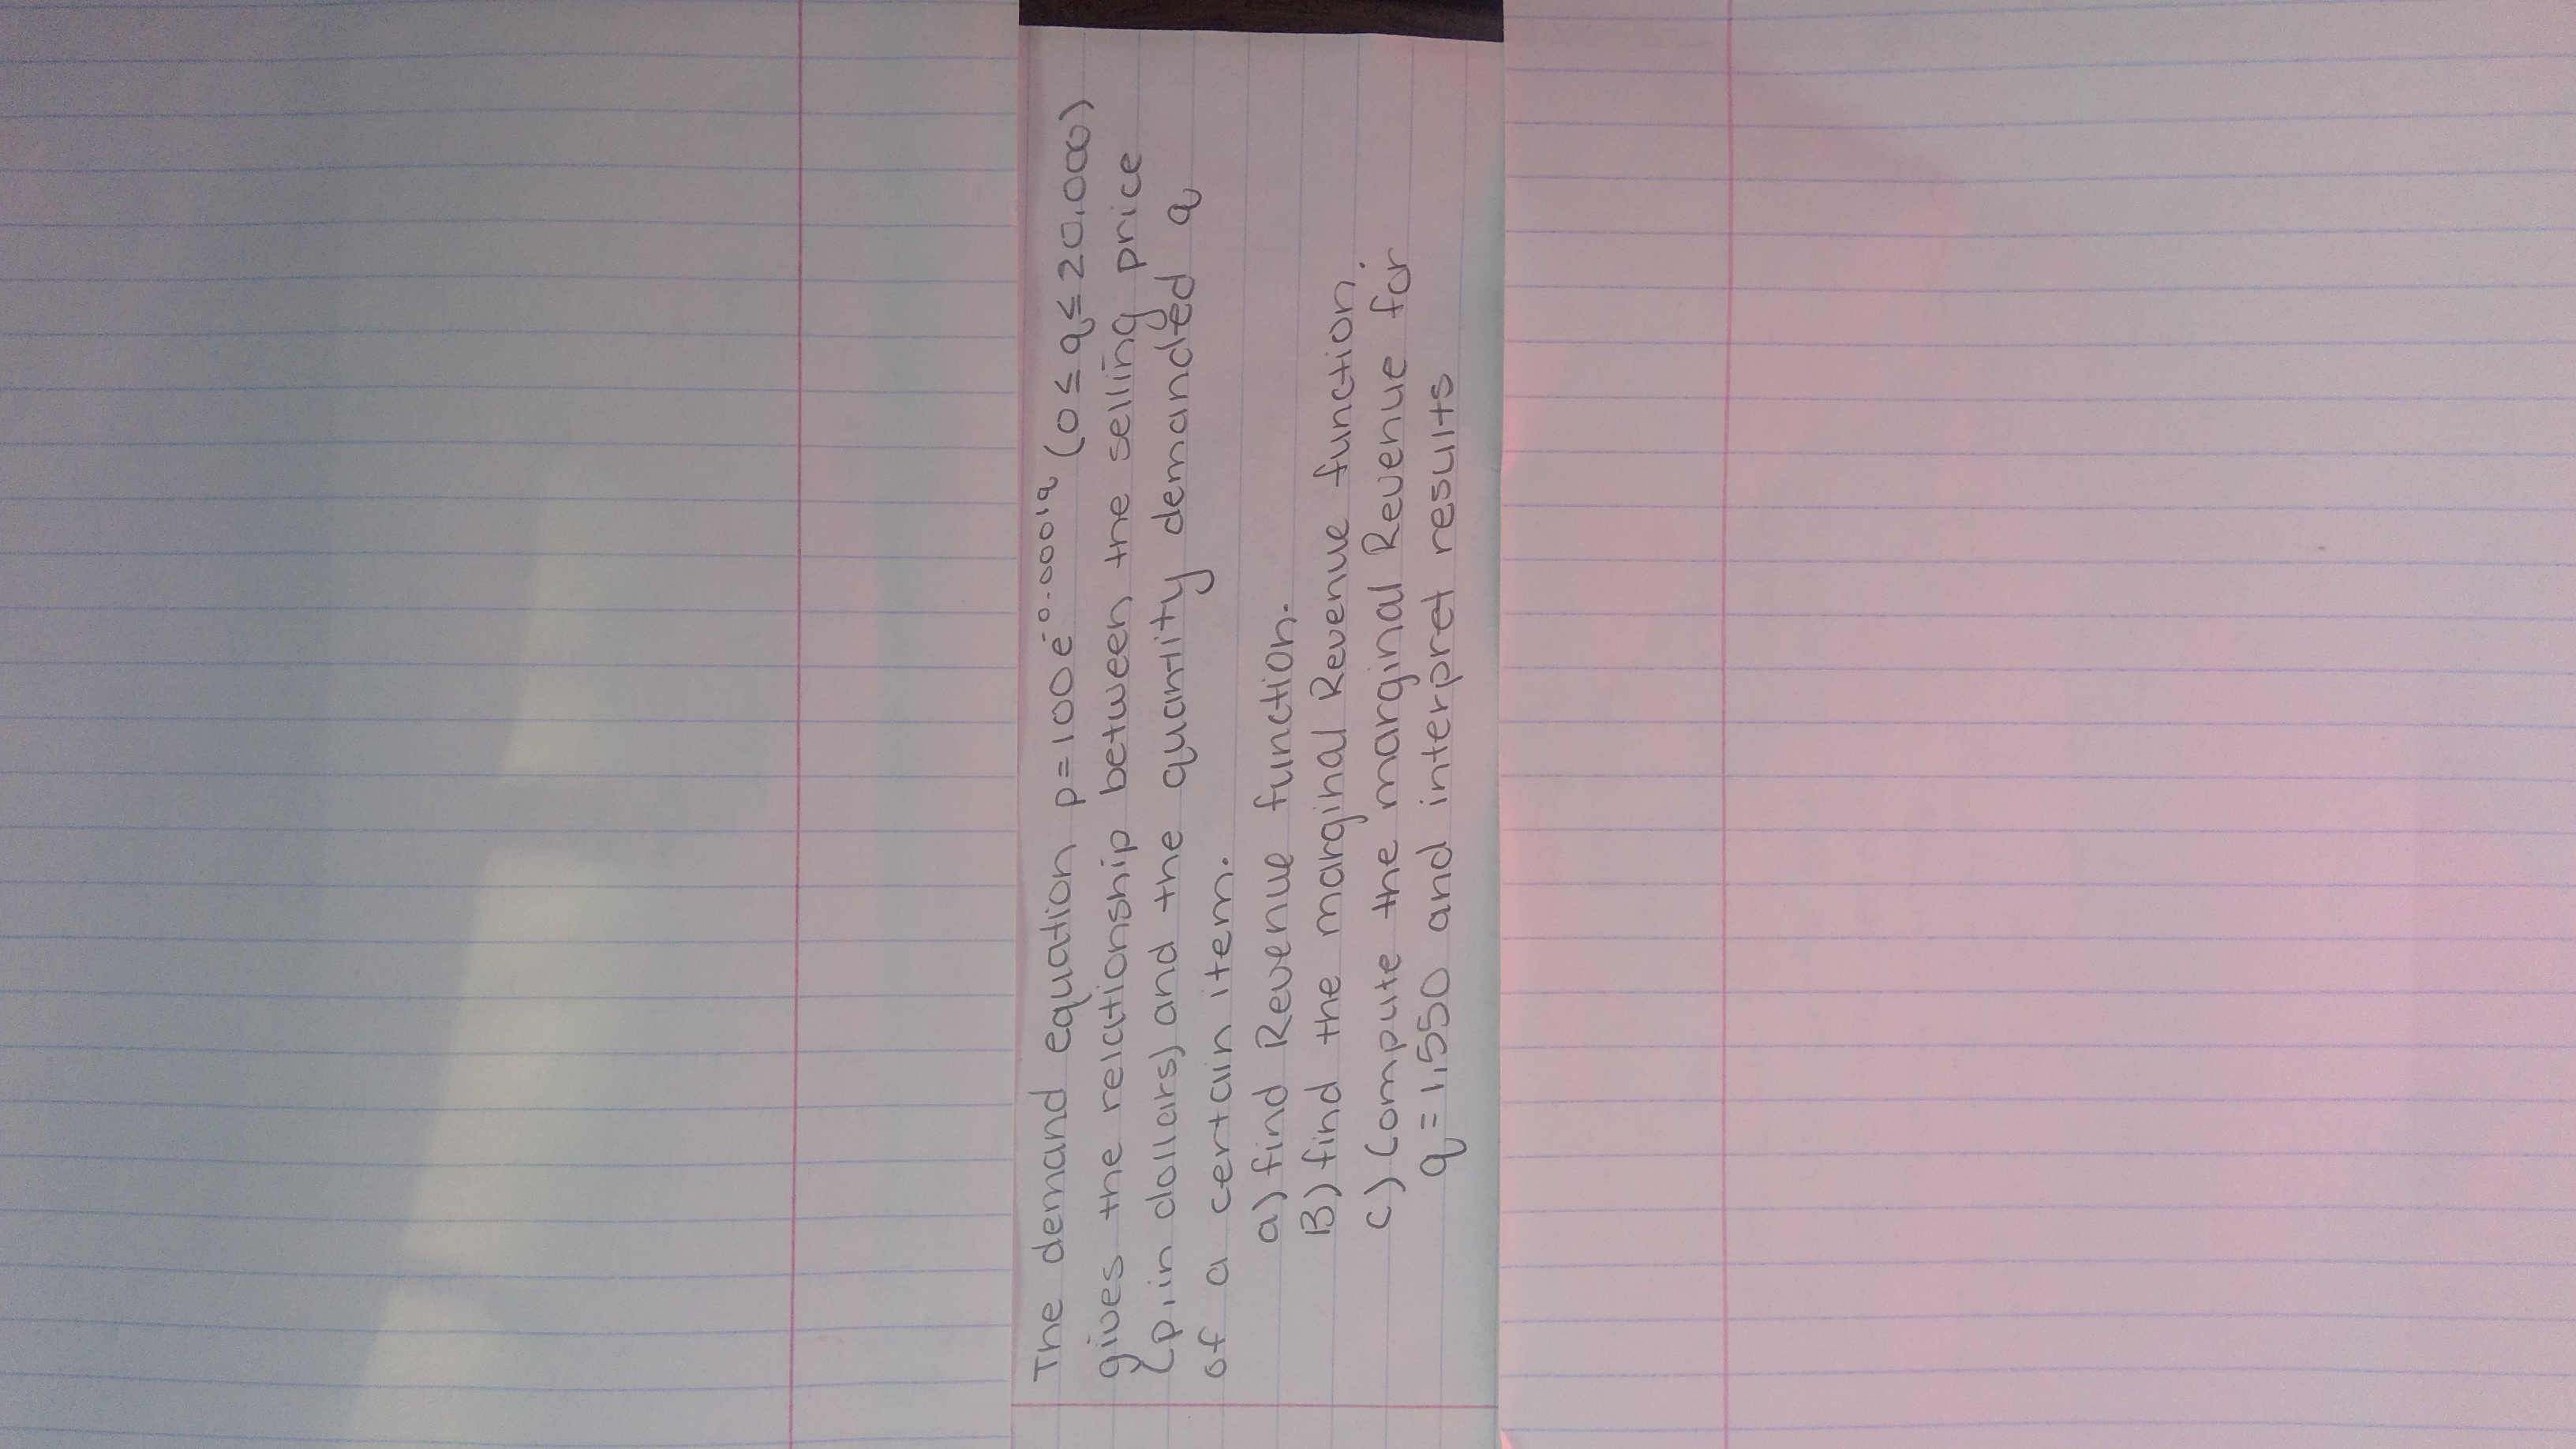 The demand equation p=100e^-0.0001q (0≤q≤20,000)
gives the relationship between the selling price
(p, in dollars) and the quantity demanded q
of a certain item.
a) find Revenue function.
B) find the marginal Revenue function.
c) Compute the marginal Revenue for
q=1,550 and interpret results